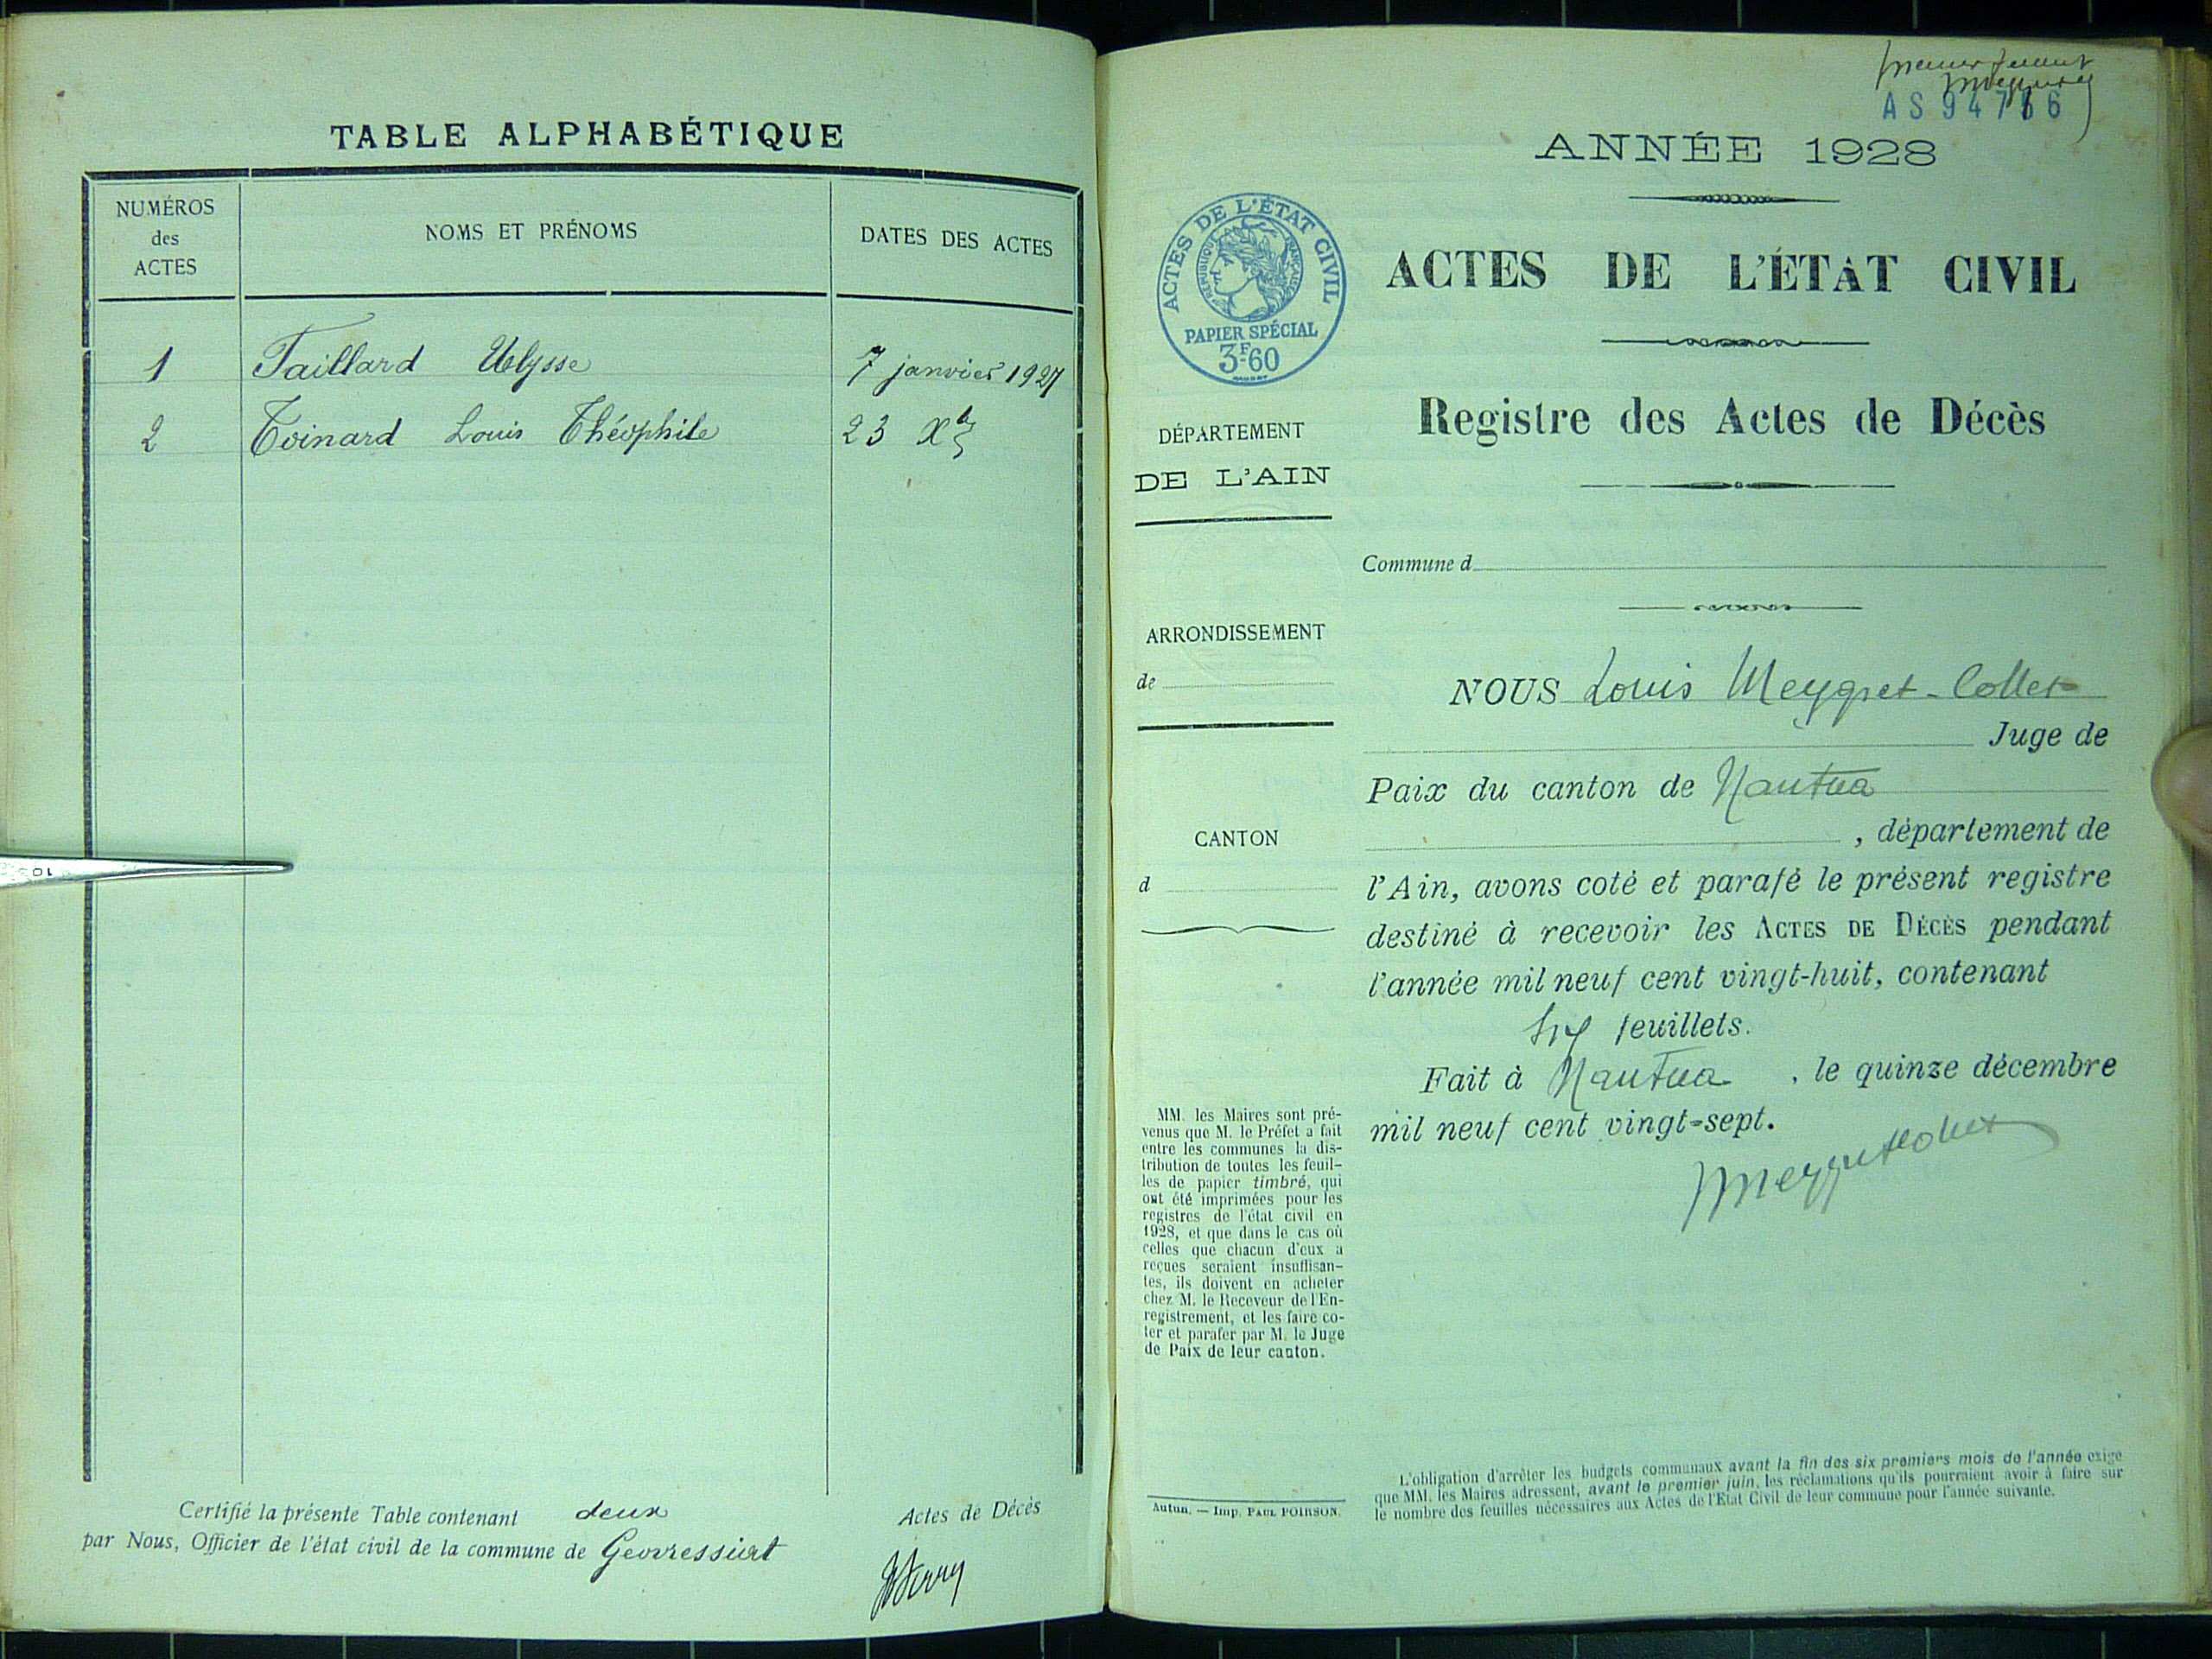 TABLE ALPHABÉTIQUE
NUMÉROS des ACTES
NOMS ET PRÉNOMS
DATES DES ACTES
1 Taillard Ulysse 7 janvier 1927
2 Toinard Louis Théophile 23 Xbre
Certifié la présente Table contenant deux Actes de Décès
par Nous, Officier de l'état civil de la commune de Geovressiat
premier feuillet
AS 94766
ANNÉE 1928
ACTES DE L'ÉTAT CIVIL
RÉPUBLIQUE FRANÇAISE
PAPIER SPÉCIAL
3F60
ACTES DE L'ÉTAT CIVIL
Registre des Actes de Décès
DÉPARTEMENT
DE L'AIN
Commune d
ARRONDISSEMENT
de
CANTON
d
NOUS Louis Meygret-Collet
Juge de
Paix du canton de Nantua
, département de
l'Ain, avons coté et parafé le présent registre
destiné à recevoir les ACTES DE DÉCÈS pendant
l'année mil neuf cent vingt-huit, contenant
six feuillets.
Fait à Nantua, le quinze décembre
mil neuf cent vingt-sept.
MM. les Maires sont pré-
venus que M. le Préfet a fait
entre les communes la dis-
tribution de toutes les feuil-
les de papier timbré, qui
ont été imprimées pour les
registres de l'état civil en
1928, et que dans le cas où
celles que chacun d'eux a
reçues seraient insuffisan-
tes, ils doivent en acheter
chez M. le Receveur de l'En-
registrement, et les faire co-
ter et parafer par M. le Juge
de Paix de leur canton.
Autun. — Imp. PAUL POIRSON.
L'obligation d'arrêter les budgets communaux avant la fin des six premiers mois de l'année exige
que MM. les Maires adressent, avant le premier juin, les réclamations qu'ils pourraient avoir à faire sur
le nombre des feuilles nécessaires aux Actes de l'État Civil de leur commune pour l'année suivante.